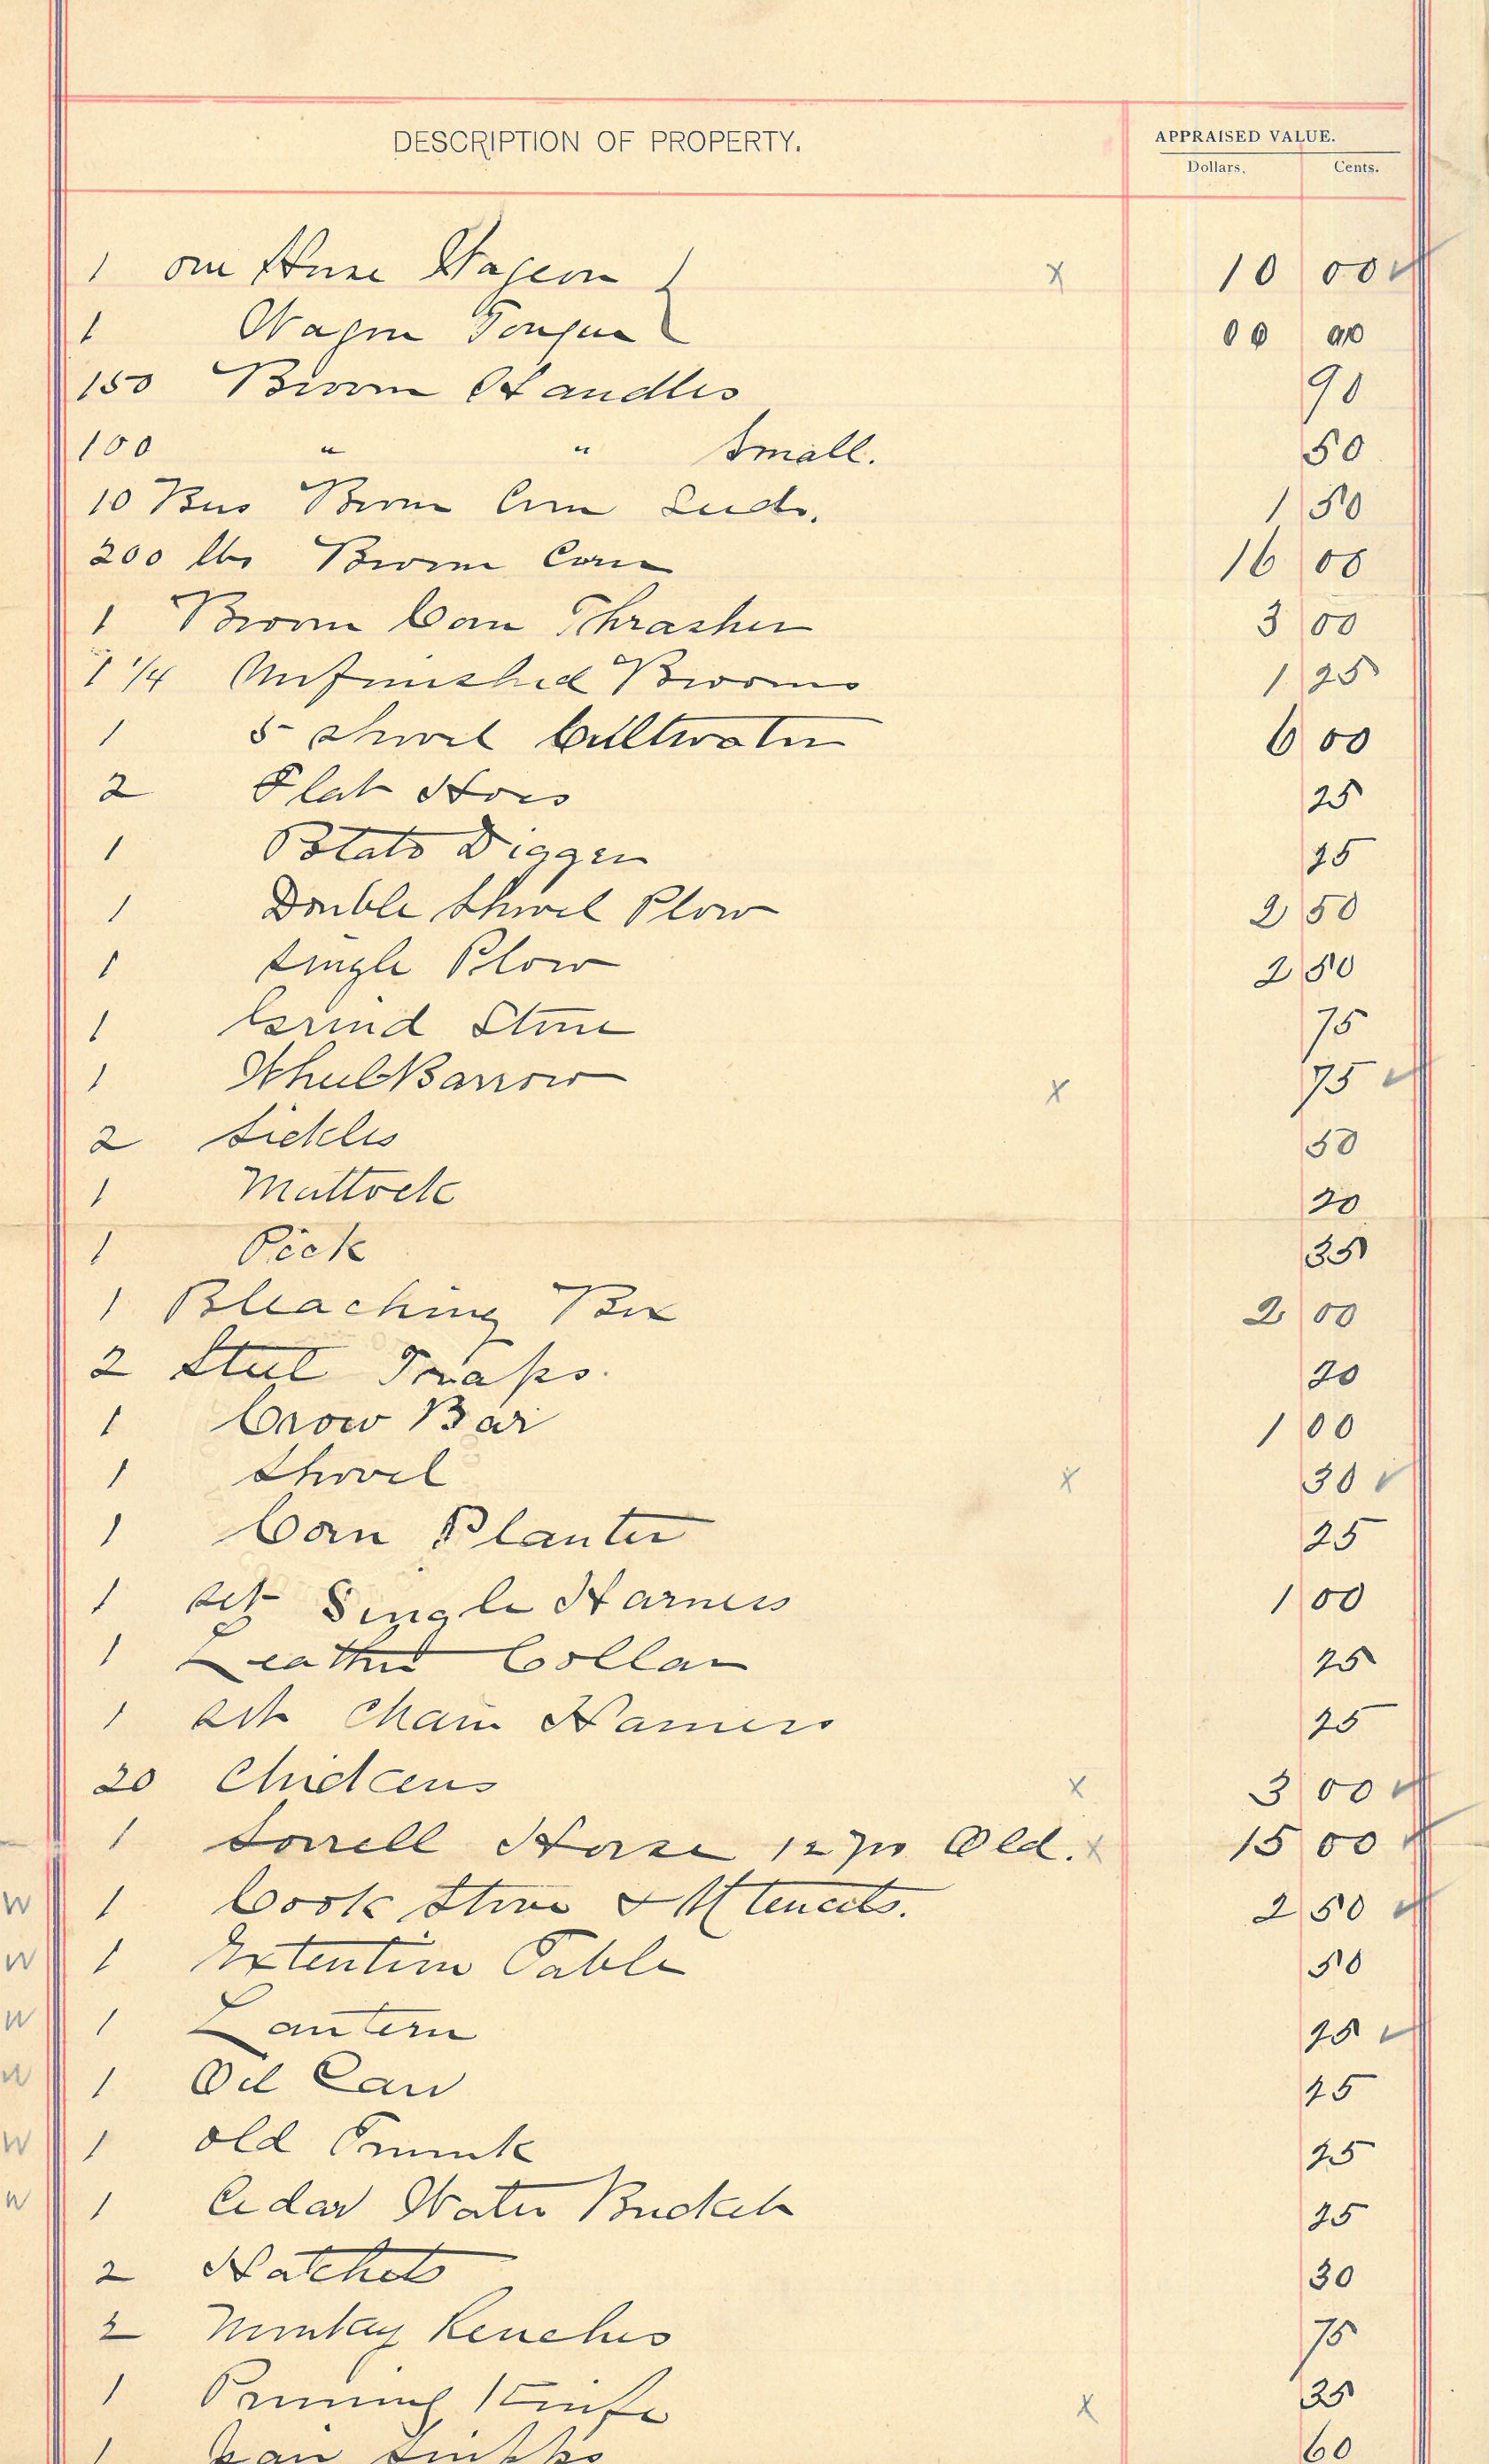 DESCRIPTION OF PROPERTY.
APPRAISED VALUE.
Dollars. Cents.
1 one Horse Wageon x 10 00 ✓
1 Wagon Tongue 00 00
150 Broom Handles 90
100 " " Small. 50
10 Bus Broom Corn Seeds. 1 50
200 lbs Broom Corn 16 00
1 Broom Corn Thrasher 3 00
1 1/4 Unfinished Brooms 1 25
1 5 shovel Cultivator 6 00
2 Flat Hoes 25
1 Potato Digger 25
1 Double Shovel Plow 2 50
1 Single Plow 2 50
1 Grind Stone 75
1 Wheel Barrow x 75 ✓
2 Sickles 50
1 Mattock 20
1 Pick 35
1 Bleaching Box 2 00
2 Steel Traps. 20
1 Crow Bar 1 00
1 Shovel x 30 ✓
1 Corn Planter 25
1 set Single Harness 1 00
1 Leather Collar 25
1 set Chain Harness 25
20 Chickens x 3 00 ✓
1 Sorrell Horse 12 yrs Old. x 15 00 ✓
W 1 Cook Stove & Utencils. 2 50 ✓
W 1 Extention Table 50
W 1 Lantern 25 ✓
W 1 Oil Can 25
W 1 old Trunk 25
W 1 Cedar Water Bucket 25
2 Hatchets 30
2 Monkey Renches 75
1 Pruning Knife x 35
1 60